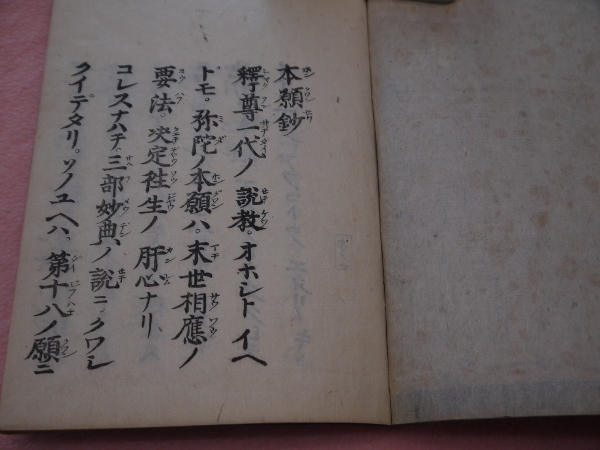 本願鈔
釋尊一代ノ説教。オホシトイヘ
トモ。弥陀ノ本願ハ。末世相應ノ
要法。决定徃生ノ肝心ナリ、
コレスナハチ。三部妙典ノ説ニ。クワシ
クイデタリ。ソノユヘハ、第十八ノ願ニ